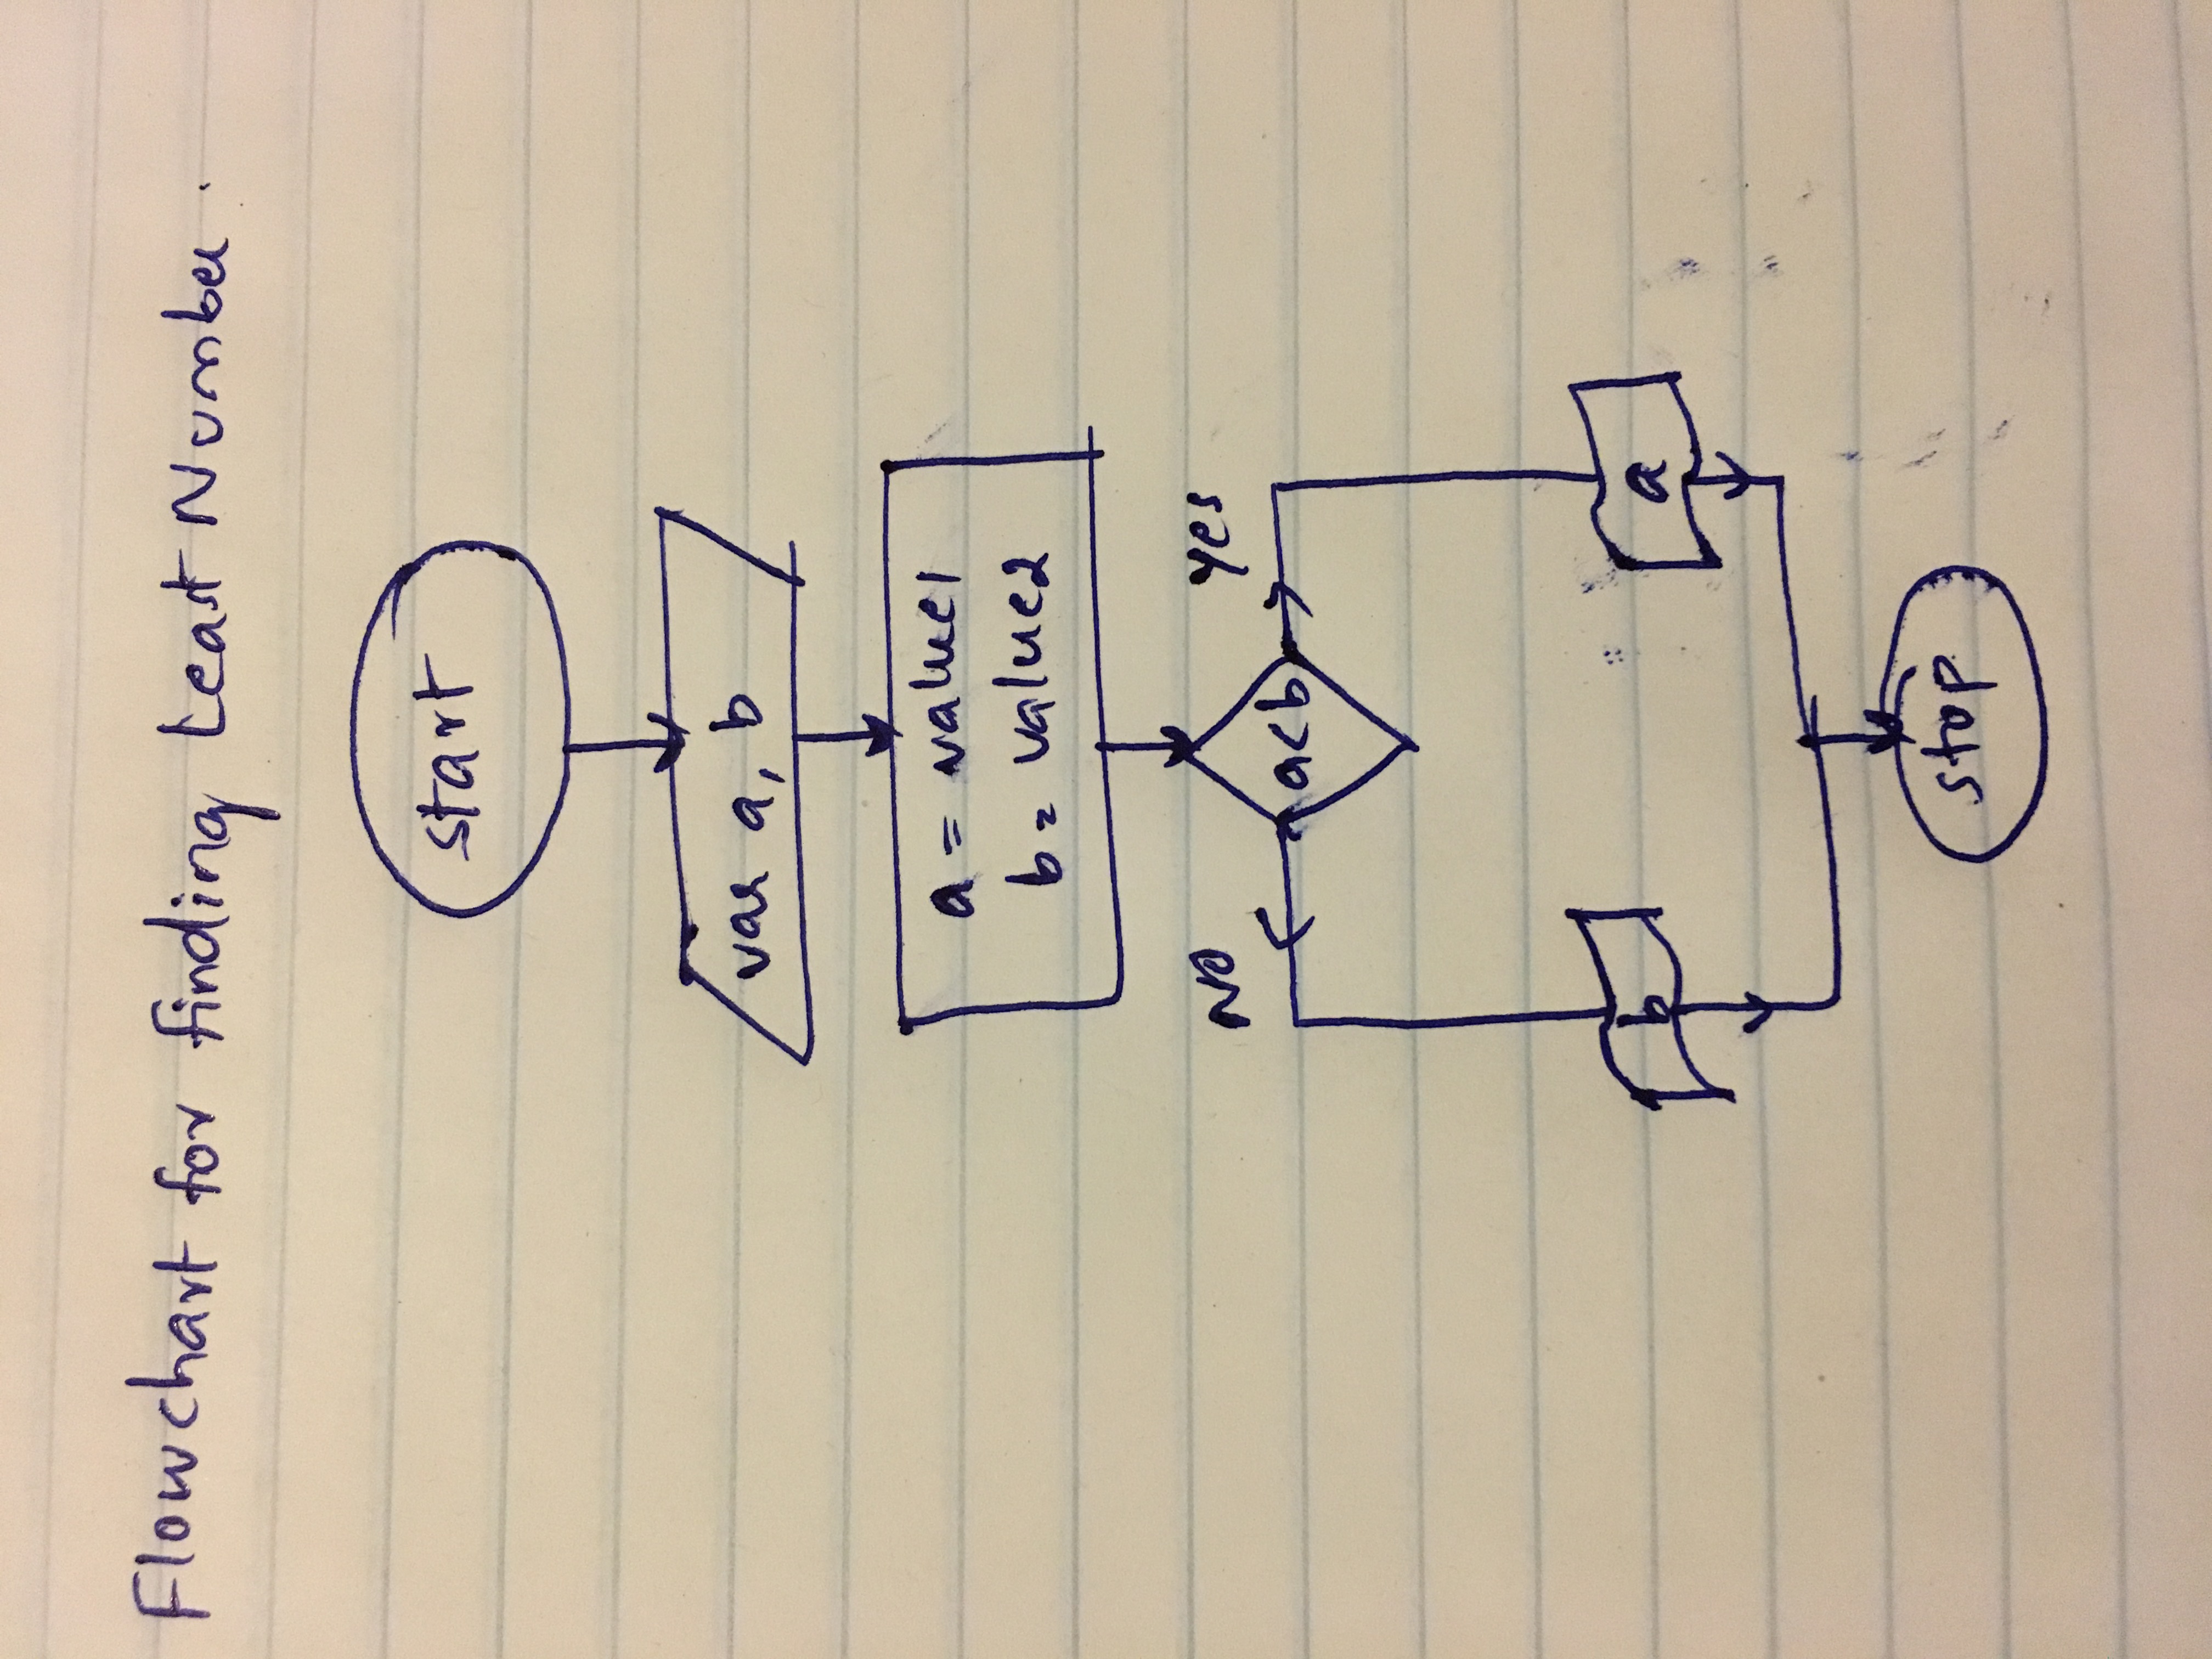 Flowchart for finding Least Number.
start
var a, b
a = value1
b = value2
NO
yes
a<b
b
a
stop